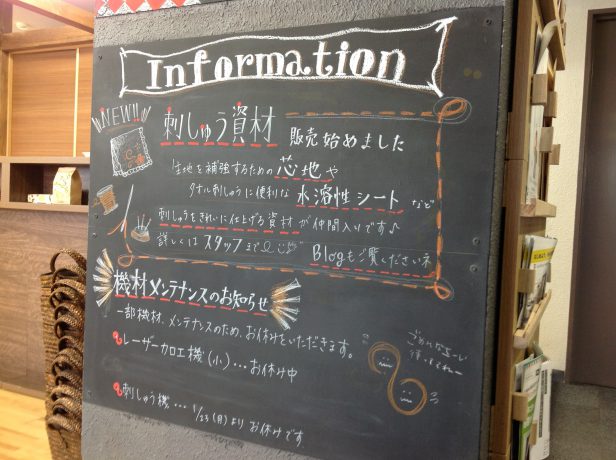 Information
NEW!!
刺しゅう資材 販売始めました
生地を補強するための芯地や
タオル刺しゅうに便利な水溶性シートなど
刺しゅうをきれいに仕上げる資材が仲間入りです♪
詳しくはスタッフまで
Blogもご覧くださいネ
機材メンテナンスのお知らせ
一部機材、メンテナンスのため、お休みをいただきます。
レーザー加工機(小)…お休み中
刺しゅう機… 1/23(月)より お休みです
ごめんなさーい
待っててねー